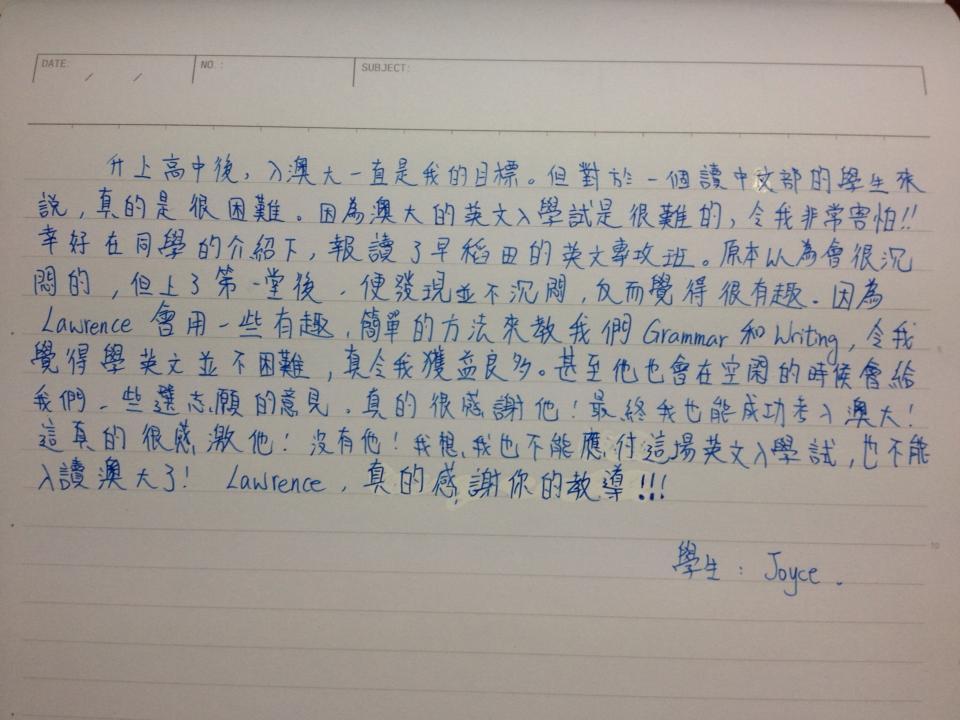 DATE: / / NO.: SUBJECT:
升上高中後，入澳大一直是我的目標。但對於一個讀中文部的學生來
說，真的是很困難。因為澳大的英文入學試是很難的，令我非常害怕!!
幸好在同學的介紹下，報讀了早稻田的英文專攻班。原本以為會很沉
悶的，但上了第一堂後，便發現並不沉悶，反而覺得很有趣。因為
Lawrence 會用一些有趣，簡單的方法來教我們 Grammar 和 Writing，令我
覺得學英文並不困難，真令我獲益良多。甚至他也會在空閑的時候會給
我們一些選志願的意見。真的很感謝他！最終我也能成功考入澳大！
這真的很感激他！沒有他！我想，我也不能應付這場英文入學試，也不能
入讀澳大了！ Lawrence，真的感謝你的教導!!!
10
學生：Joyce.